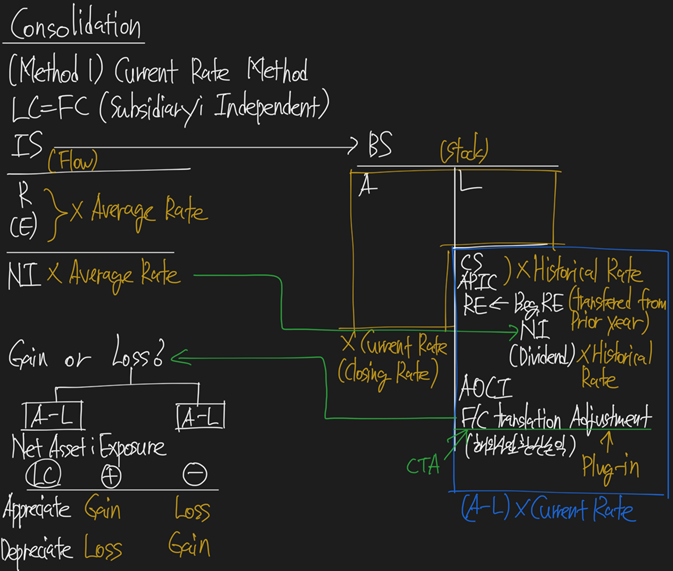 Consolidation
(Method 1) Current Rate Method
LC=FC (Subsidiary; Independent)
IS (Flow)
BS (Stock)
R
(E)
X Average Rate
NI X Average Rate
A
L
X Current Rate
(Closing Rate)
CS
APIC
) X Historical Rate
RE ← Beg, RE (transferred from
Prior year)
NI
(Dividend) X Historical
Rate
AOCI
F/C translation Adjustment
(해외사업환산손익)
CTA
Plug-in
(A-L) X Current Rate
Gain or Loss?
A-L
A-L
Net Asset; Exposure
LC + -
Appreciate Gain Loss
Depreciate Loss Gain